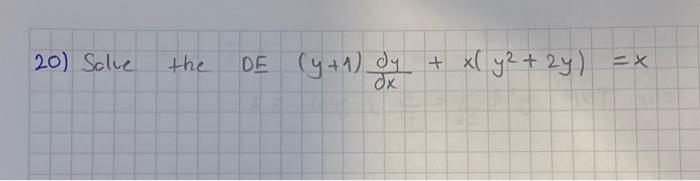 20) Solve the DE (y+1) dy/dx + x(y²+2y) =x